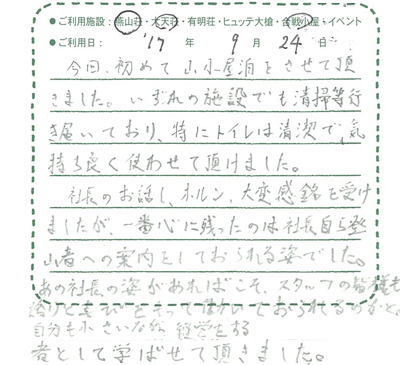 ●ご利用施設：燕山荘・大天荘・有明荘・ヒュッテ大槍・合戦小屋・イベント
●ご利用日： '17 年 9 月 24 日
今回、初めて山小屋泊をさせて頂
きました。いずれの施設でも清掃等行
き届いており、特にトイレは清潔で、気
持ち良く使わせて頂けました。
社長のお話し、ホルン、大変感銘を受け
ましたが、一番心に残ったのは社長自ら登
山者への案内をしておられる姿でした。
あの社長の姿があればこそ、スタッフの皆様も
誇りと喜びをもって働いておられるのかと。
自分も小さいながら経営をする
者として学ばせて頂きました。